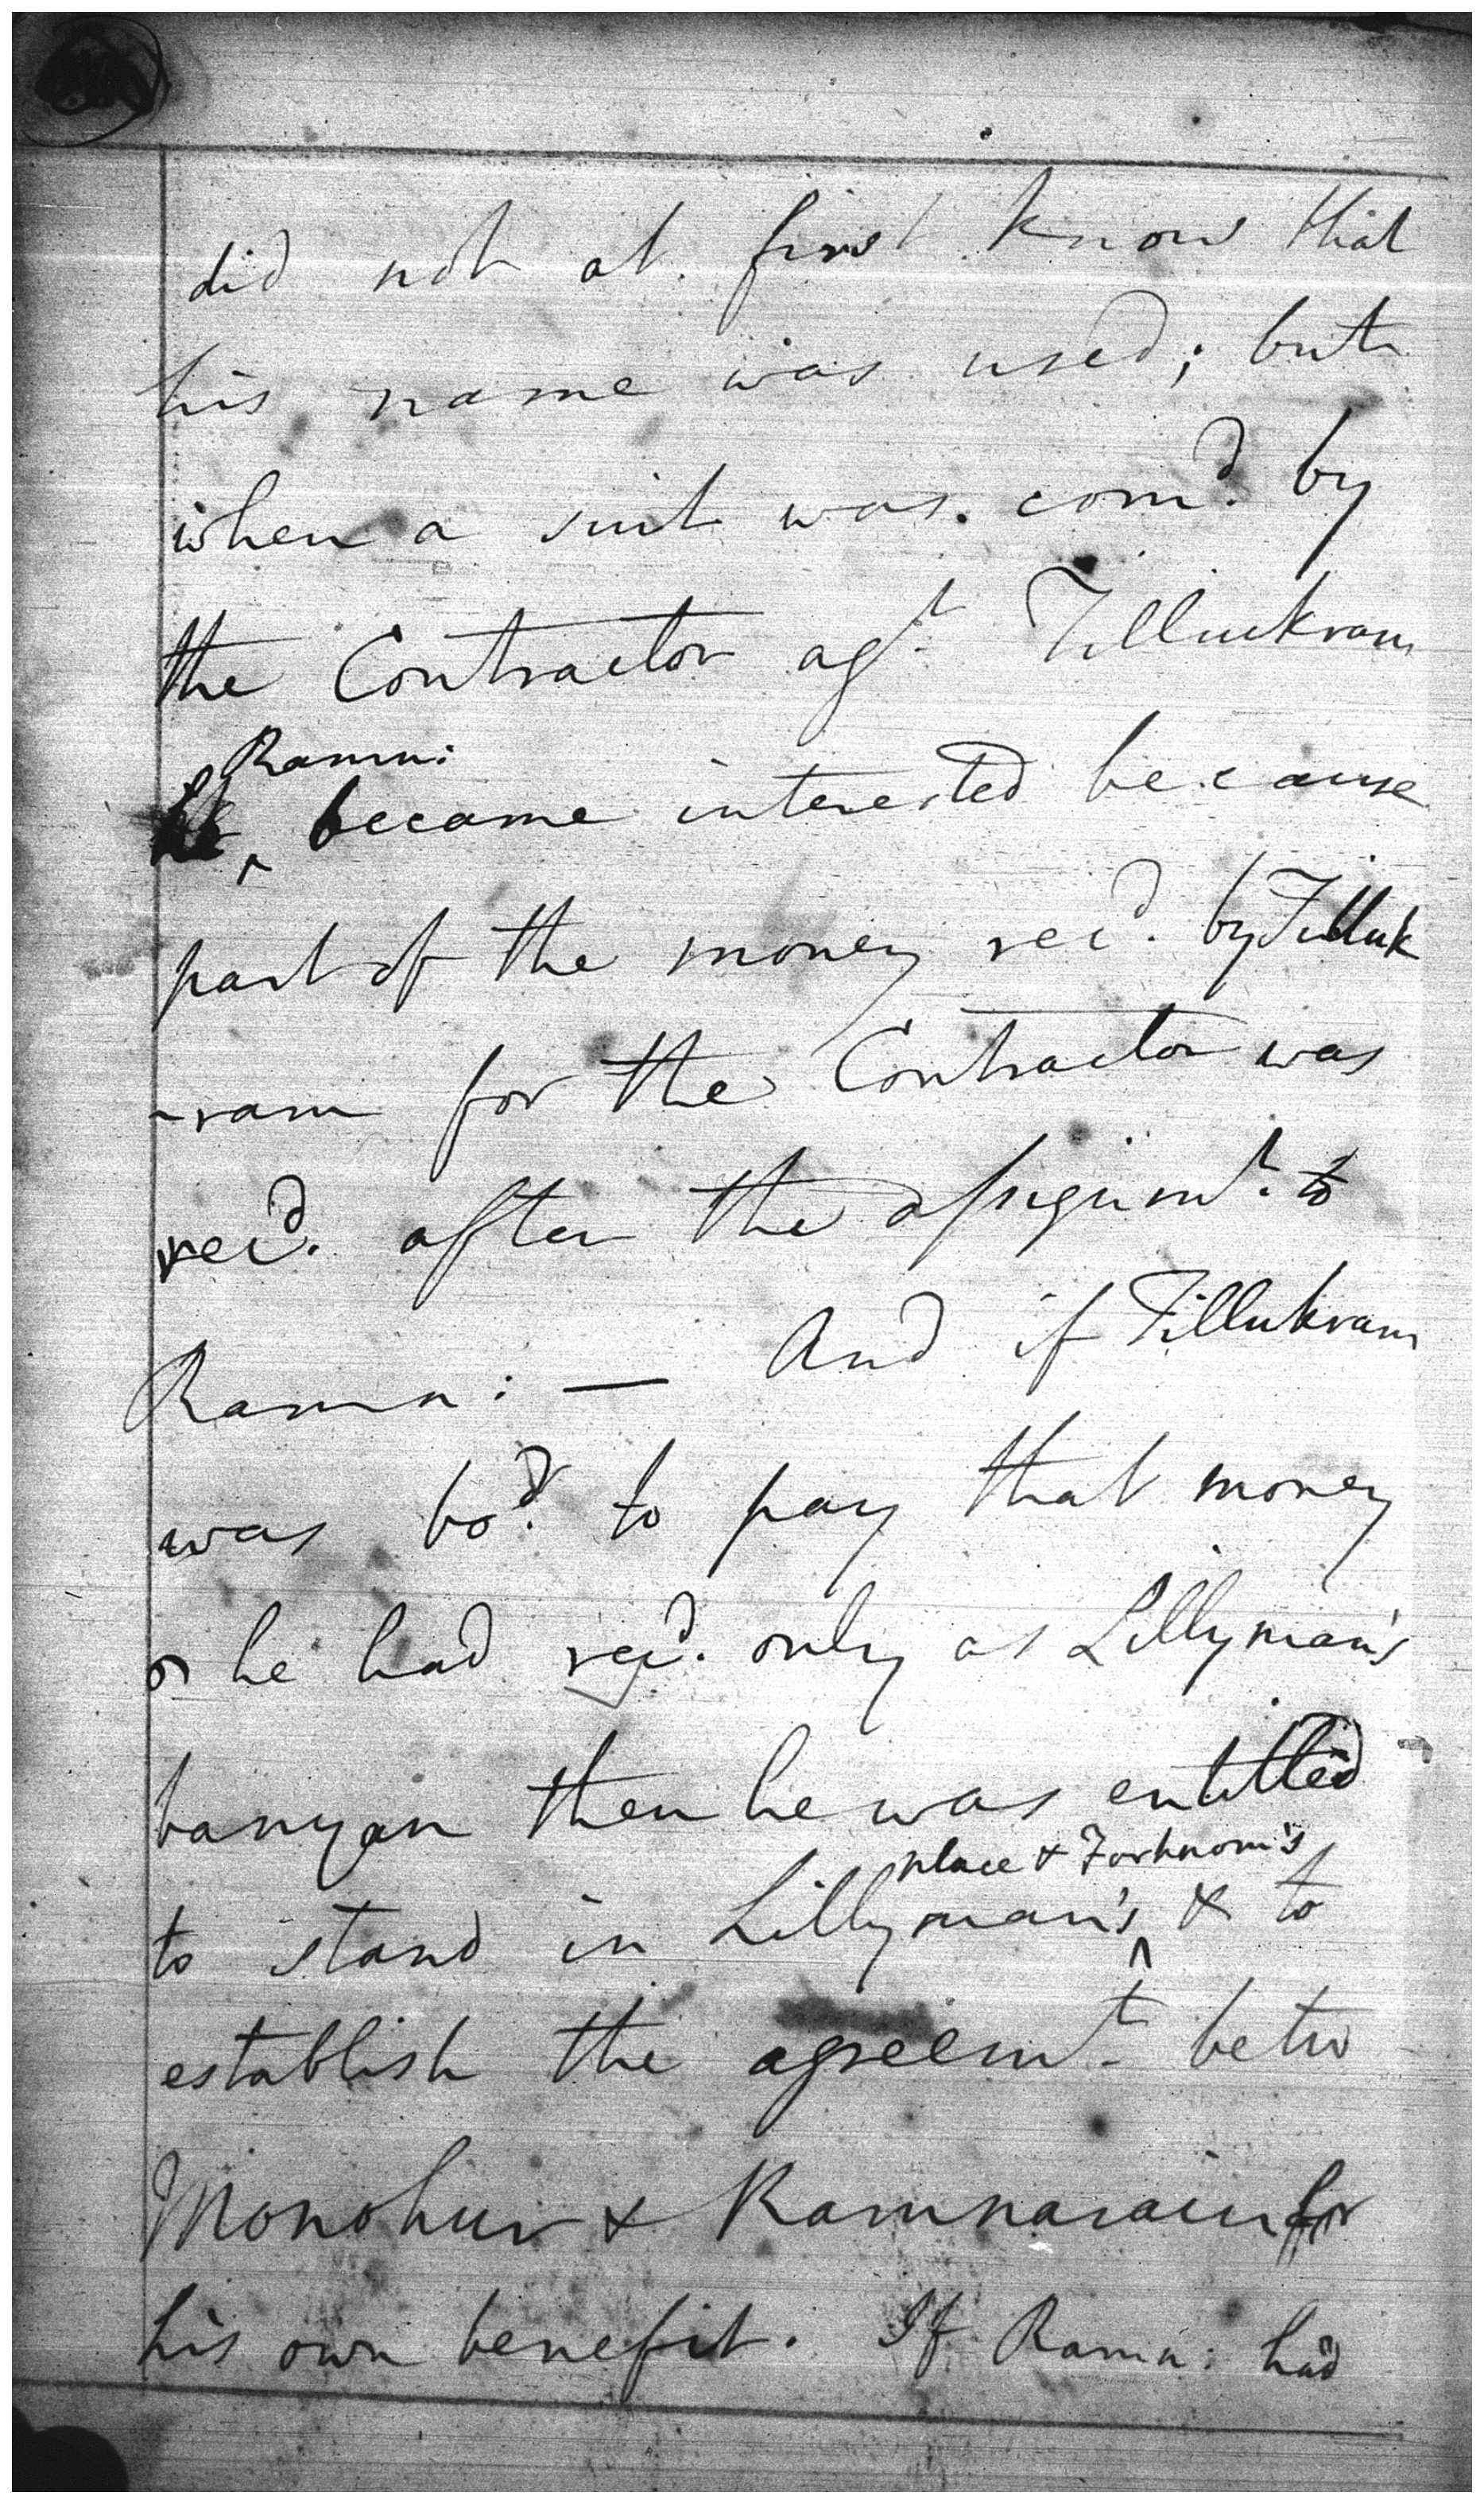 did not at first know that
his name was used; but
when a suit was com.d by
the Contractor agt. Tilluckram
Ramn:
he ^ became interested because
part of the money recd. by Tilluk
-ram for the Contractor was
recd. after the assignmt. to
Ramn: — And if Tillukram
was bod. to pay that money
he had recd. only as Lillyman's
banyan then he was entitled
place & Forhnom's
to stand in Lillyman's ^ & to
establish the agreemt. betw
Monohur & Ramnarain for
his own benefit. If Ramn: had